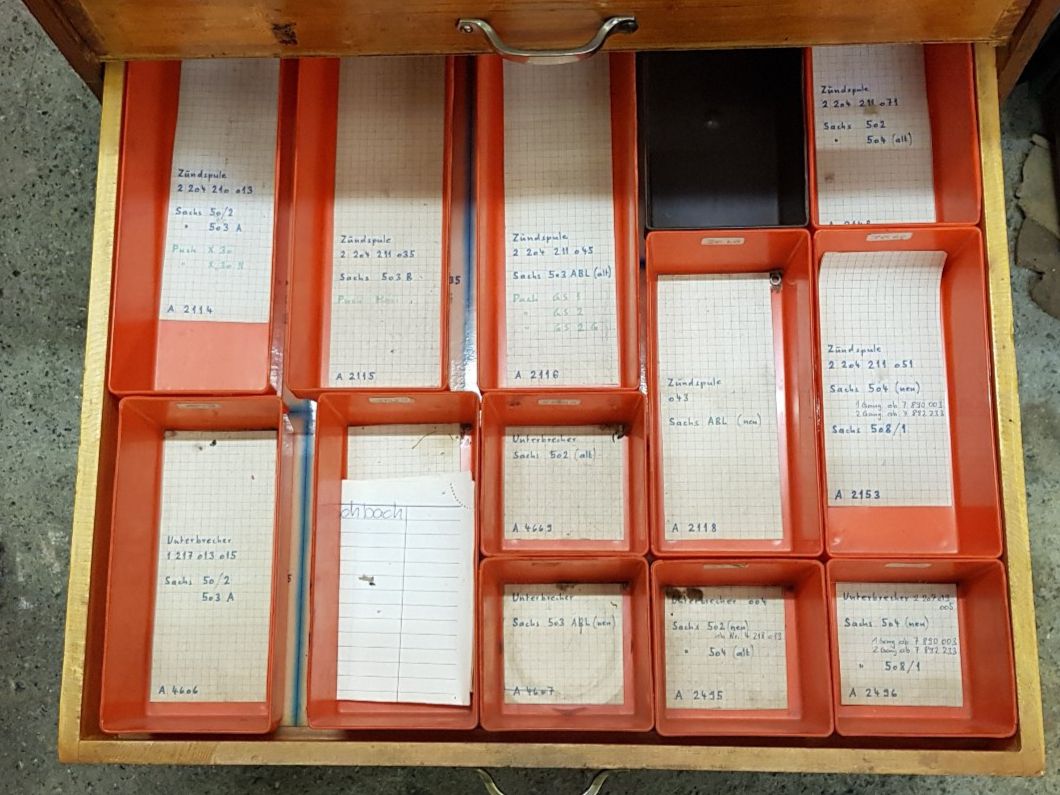 Zündspule
2 204 210 013
Sachs 50/2
" 503 A
Puch X 30
" X 30 
A 2114
Zündspule
2 204 211 035
Sachs 503 B
Puch
A 2115
35
Zündspule
2 204 211 045
Sachs 503 ABL (alt)
Puch GS 1
" GS 2
" GS 2 G
A 2116
Zündspule
2 204 211 071
Sachs 502
" 504 (alt)
Zündspule
043
Sachs ABL (neu)
A 2118
Zündspule
2 204 211 051
Sachs 504 (neu)
1 Gang ab 7 890 003
2 Gang ab 7 892 233
Sachs 508/1
A 2153
Unterbrecher
1 217 013 015
Sachs 50/2
503 A
A 4606
chbach
Unterbrecher
Sachs 502 (alt)
A 4669
Unterbrecher
Sachs 503 ABL (neu)
A 4607
Unterbrecher 004
Sachs 502 (neu)
Nr. 4 218 013
" 504 (alt)
A 2495
Unterbrecher 2 207 013
005
Sachs 504 (neu)
1 Gang ab 7 890 003
2 Gang ab 7 892 233
" 508/1
A 2496